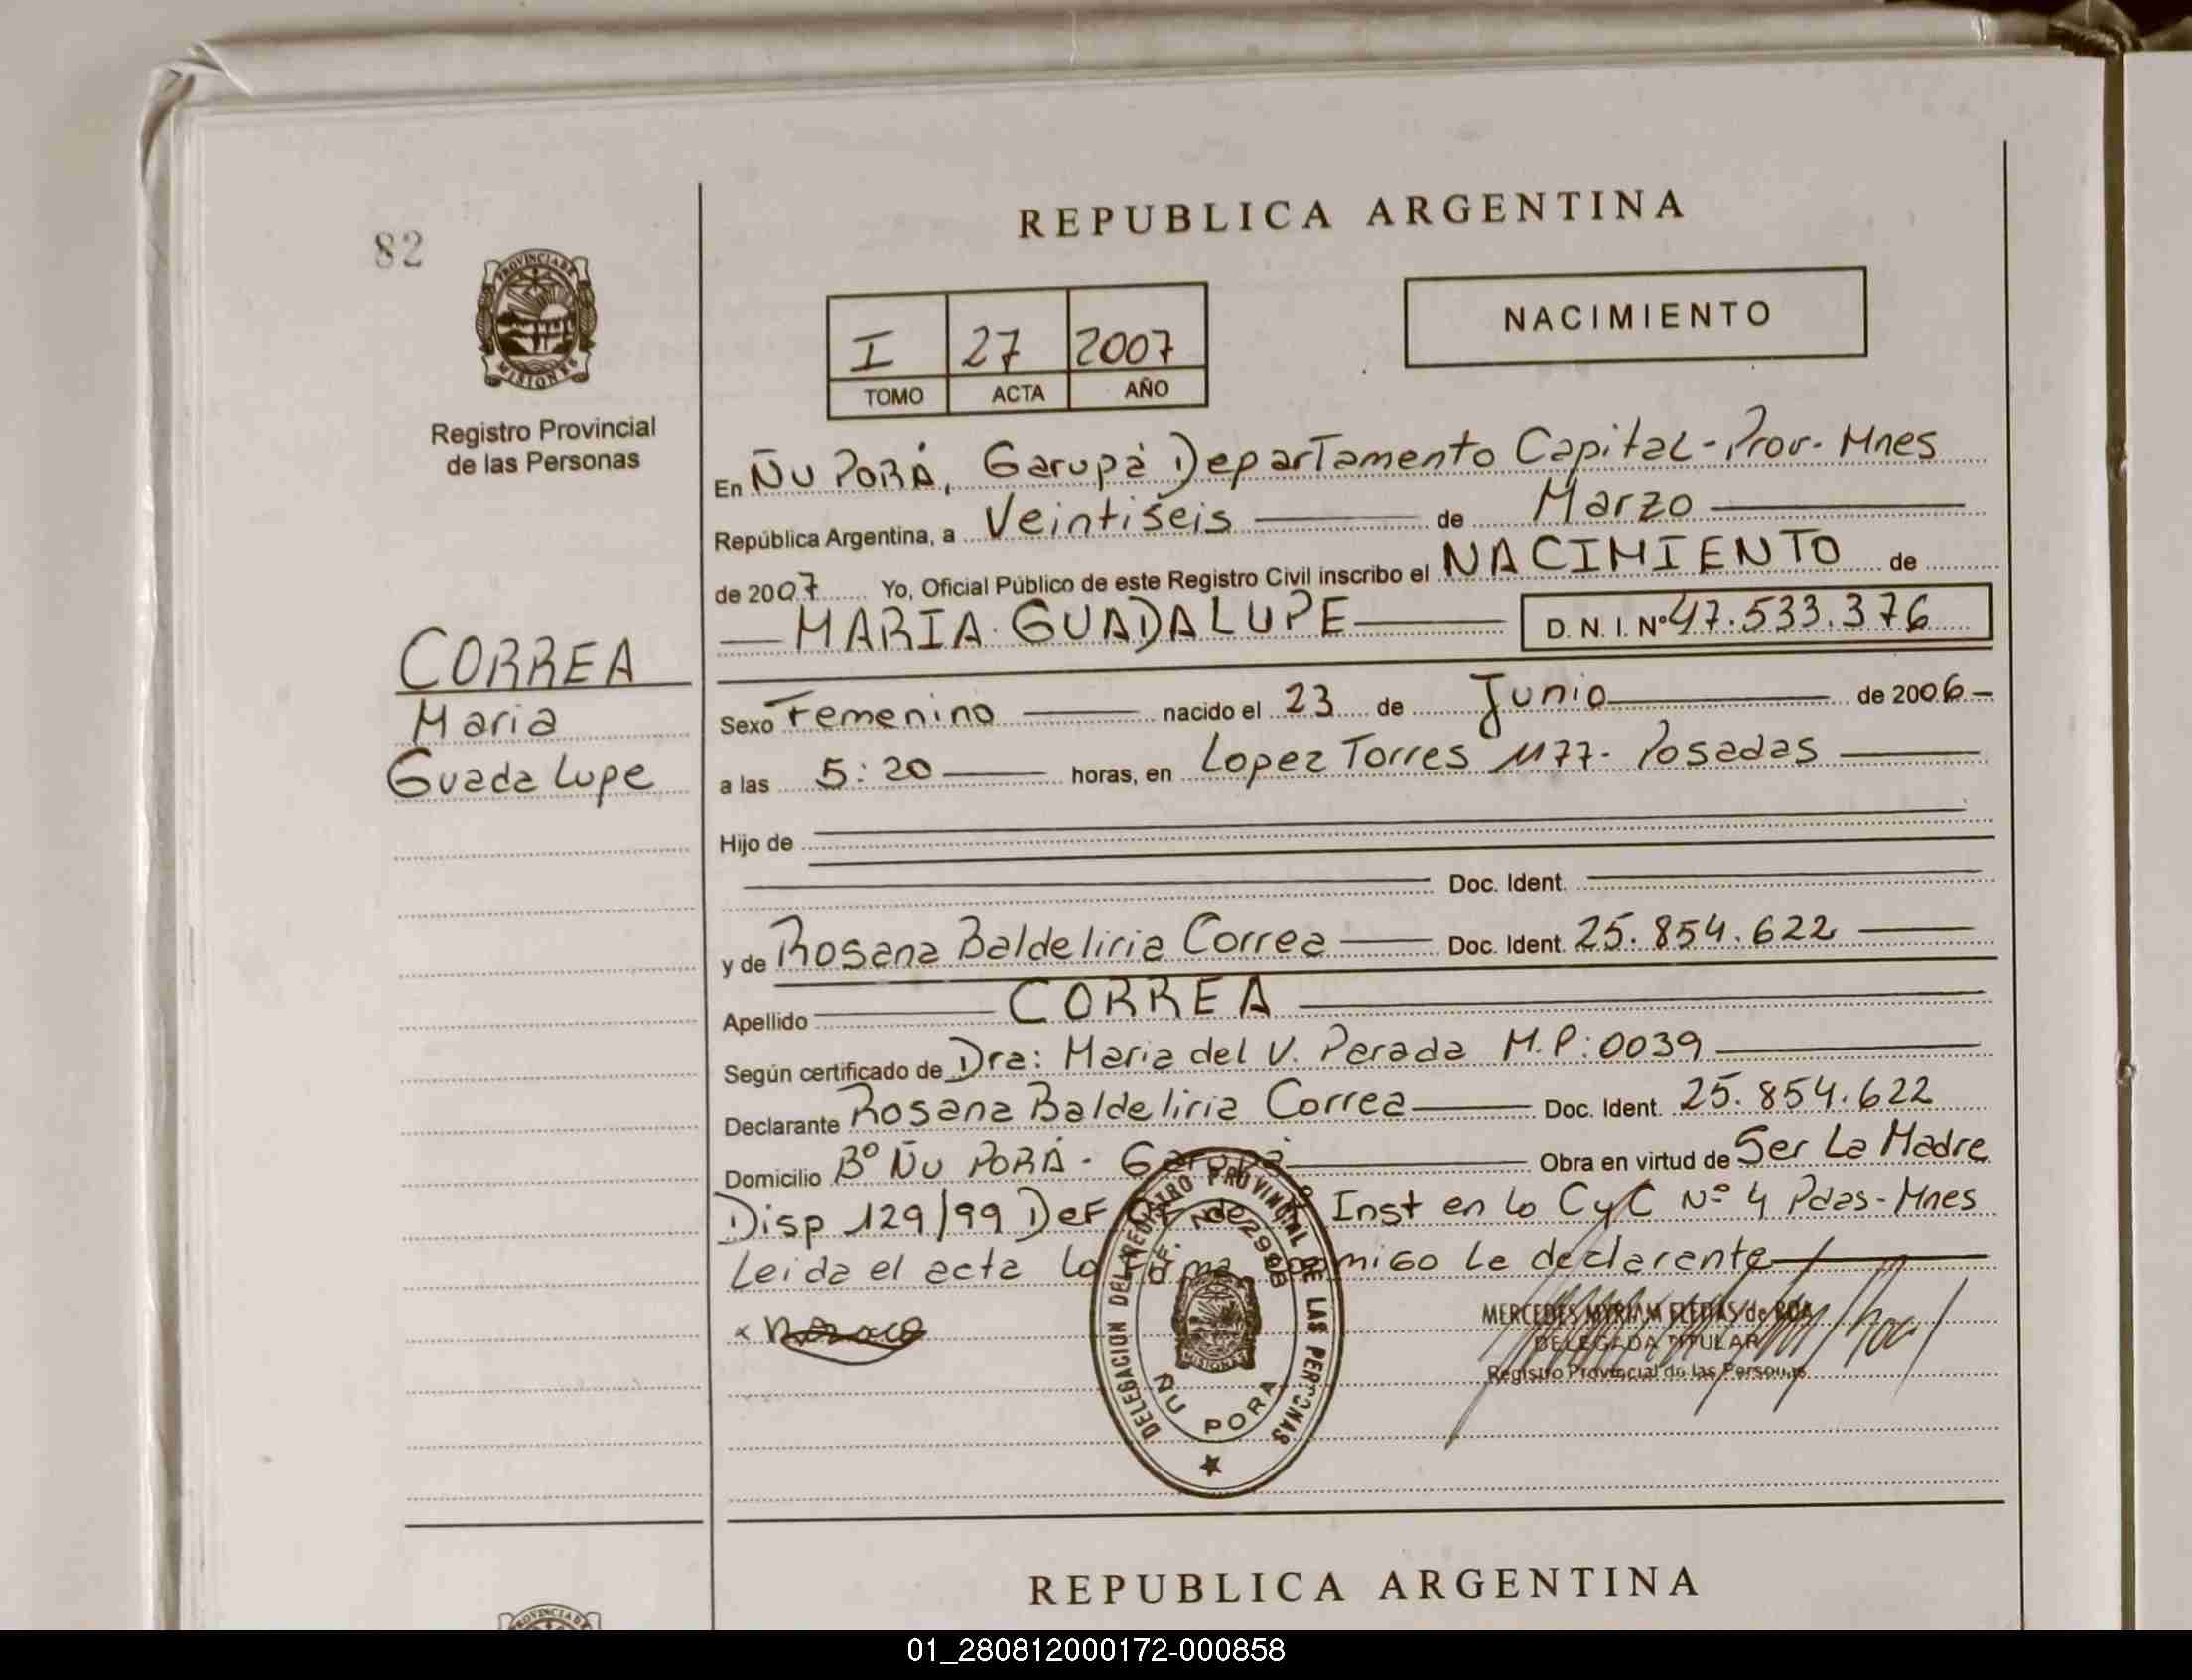 82
PROVINCIA DE
MISIONES
Registro Provincial
de las Personas
CORREA
Maria
Guadalupe
REPUBLICA ARGENTINA
I 27 2007
TOMO ACTA AÑO
NACIMIENTO
En ÑU PORÁ, Garupá Departamento Capital - Prov. Mnes
República Argentina, a Veintiseis de Marzo
de 2007 Yo, Oficial Público de este Registro Civil inscribo el NACIMIENTO de
MARIA GUADALUPE D. N. I. Nº 47.533.376
Sexo Femenino nacido el 23 de Junio de 2006
a las 5:20 horas, en Lopez Torres 1177 - Posadas
Hijo de
Doc. Ident.
y de Rosana Baldeliria Correa Doc. Ident. 25.854.622
Apellido CORREA
Según certificado de Dra: Maria del V. Parada M.P: 0039
Declarante Rosana Baldeliria Correa Doc. Ident. 25.854.622
Domicilio Bº ÑU PORÁ - Garupá Obra en virtud de Ser La Madre
Disp 129/99 Def Inst en lo CyC Nº 4 Pdas - Mnes
Leida el acta la firma conmigo la declarante
DELEGACION DEL REGISTRO PROVINCIAL DE LAS PERSONAS
MISIONES
ÑU PORA
MERCEDES MYRIAM
DELEGADA TITULAR
Registro Provincial de las Personas
REPUBLICA ARGENTINA
PROVINCIA DE
01_280812000172-000858